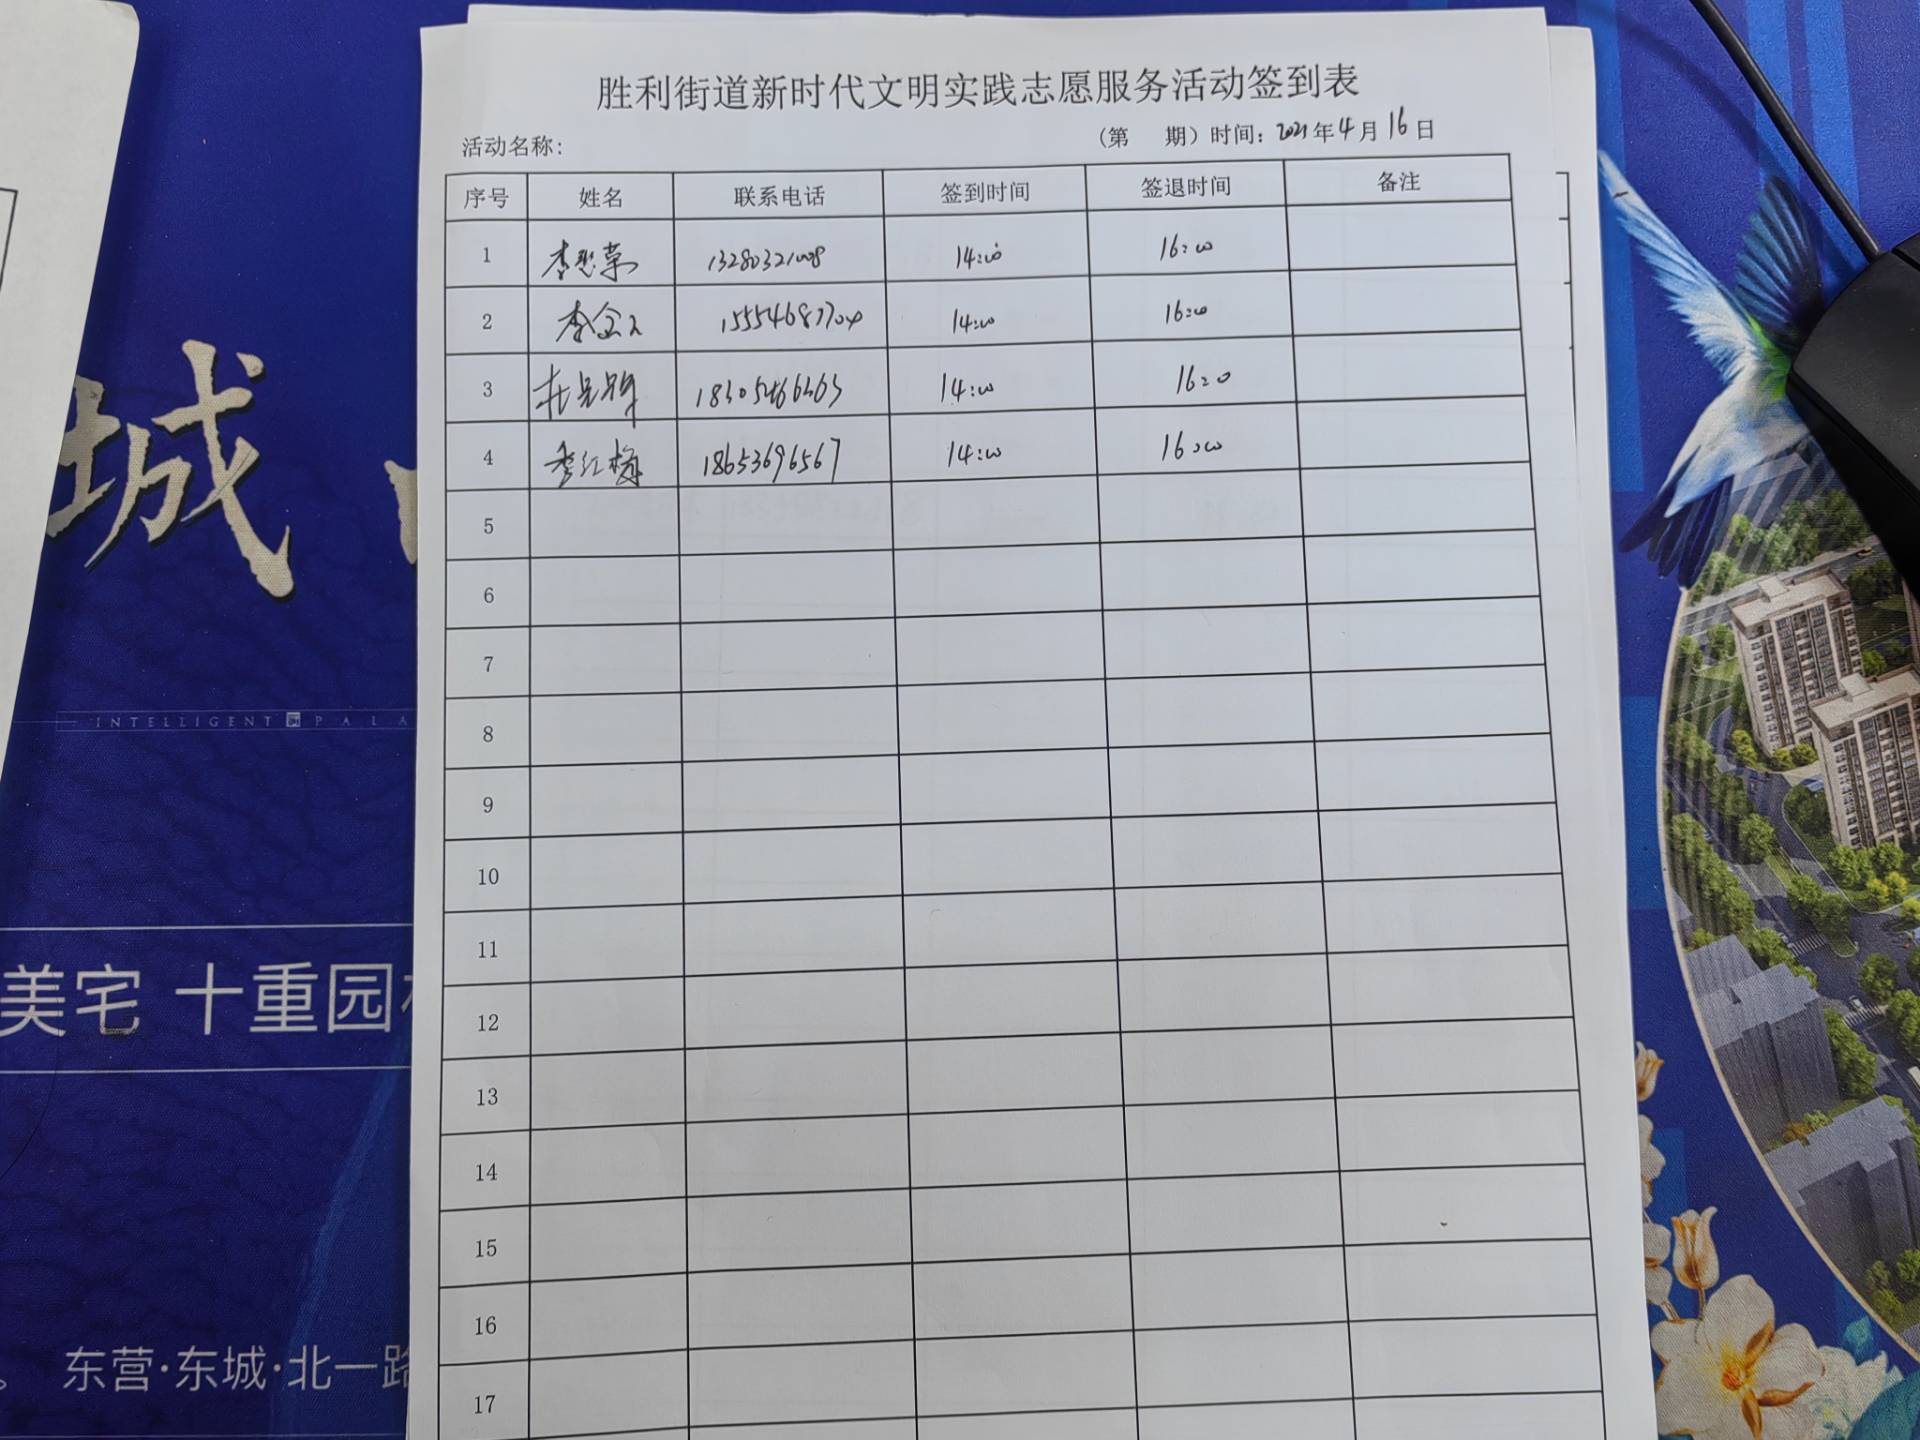 胜利街道新时代文明实践志愿服务活动签到表
活动名称:
(第 期) 时间: 2021年4月16日
序号 姓名 联系电话 签到时间 签退时间 备注
1 14:00 16:00
2 14:00 16:00
3 14:00 16:00
4 李红梅 18653696567 14:00 16:00
5
6
7
8
9
10
11
12
13
14
15
16
17
城
INTELLIGENT PALA
美宅 十重园
东营·东城·北一路